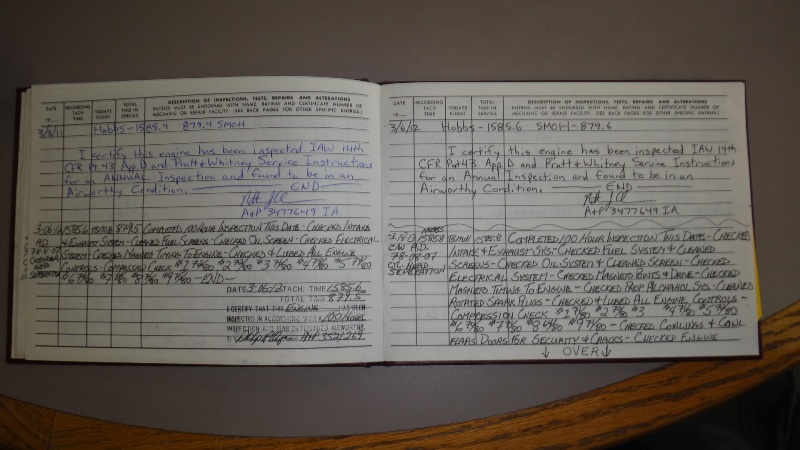 DATE
19
RECORDING
TACH
TIME
TODAYS
FLIGHT
TOTAL
TIME IN
SERVICE
DESCRIPTION OF INSPECTIONS, TESTS, REPAIRS AND ALTERATIONS
ENTRIES MUST BE ENDORSED WITH NAME, RATING AND CERTIFICATE NUMBER OF
MECHANIC OR REPAIR FACILITY. (SEE BACK PAGES FOR OTHER SPECIFIC ENTRIES.)
3/3/11 Hobbs-1585.4 879.4 SMOH
I certify this engine has been inspected IAW 14th
CFR Pt 43 App. D and Pratt & Whitney Service Instructions
for an ANNUAL Inspection and found to be in an
Airworthy Condition. END
A+P 3477649 IA
3-06-12 1585.6 879.5 COMPLETED 100 HOUR INSPECTION THIS DATE - CHECKED INTAKE
& EXHAUST SYSTEM - CLEANED FUEL SCREENS - CHECKED OIL SCREEN - CHECKED ELECTRICAL
SYSTEM - CHECKED MAGNETO TIMING TO ENGINE - CHECKED & LUBED ALL ENGINE
CONTROLS - COMPRESSION CHECK
END
DATE 3-06-12 TACH. TIME 1585.6
TOTAL TIME 879.5
I CERTIFY THAT THIS ENGINE HAS BEEN
INSPECTED IN ACCORDANCE WITH A 100 HOUR
INSPECTION AND WAS DETERMINED AIRWORTHY.
A+P 3521269
DATE
19
RECORDING
TACH
TIME
TODAYS
FLIGHT
TOTAL
TIME IN
SERVICE
DESCRIPTION OF INSPECTIONS, TESTS, REPAIRS AND ALTERATIONS
ENTRIES MUST BE ENDORSED WITH NAME, RATING AND CERTIFICATE NUMBER OF
MECHANIC OR REPAIR FACILITY. (SEE BACK PAGES FOR OTHER SPECIFIC ENTRIES.)
3/6/12 Hobbs-1585.6 SMOH-879.6
I certify this engine has been inspected IAW 14th
CFR Part 43 App. D and Pratt & Whitney Service Instructions
for an Annual Inspection and found to be in an
Airworthy Condition. END
A+P 3477649 IA
3-18-13 1585.8 COMPLETED 100 HOUR INSPECTION THIS DATE - CHECKED
C/W A.D. INTAKE & EXHAUST SYS - CHECKED FUEL SYSTEM & CLEANED
78-08-07 SCREENS - CHECKED OIL SYSTEM & CLEANED SCREEN - CHECKED
CYL HEAD ELECTRICAL SYSTEM - CHECKED MAGNETO POINTS & DRIVE - CHECKED
SEPERATION MAGNETO TIMING TO ENGINE - CHECKED PROP ALCHAHOL SYS - CLEANED
ROTATED SPARK PLUGS - CHECKED & LUBED ALL ENGINE CONTROLS -
COMPRESSION CHECK
- CHECKED COWLINGS & COWL
FLAPS DOORS FOR SECURITY & CRACKS - CHECKED ENGINE
↓ OVER ↓